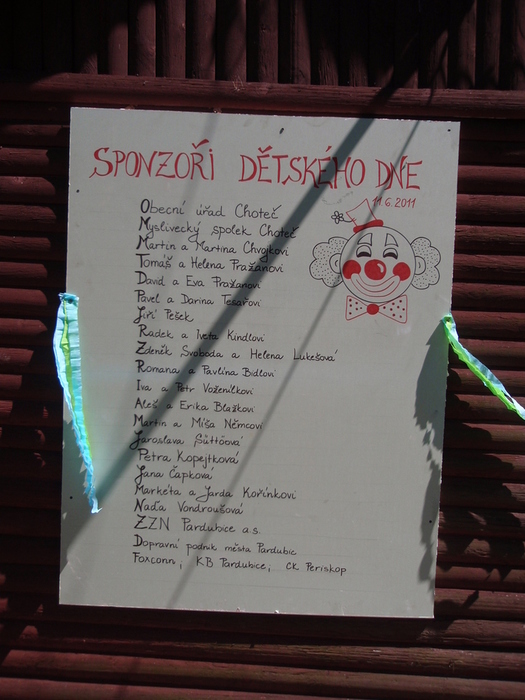 SPONZOŘI DĚTSKÉHO DNE
11.6.2011
Obecní úřad Choteč
Myslivecký spolek Choteč
Martin a Martina Chvojkovi
Tomáš a Helena Pražanovi
David a Eva Pražanovi
Pavel a Darina Tesařovi
Jiří Pešek
Radek a Iveta Kindlovi
Zdeněk Svoboda a Helena Lukešová
Romana a Pavlína Bidlovi
Iva a Petr Voženílkovi
Aleš a Erika Blažkovi
Martin a Míša Němcovi
Jaroslava
Petra Kopejtková
Jana Čapková
Markéta a Jarda Kořínkovi
Naďa Vondroušová
ZZN Pardubice a.s.
Dopravní podnik města Pardubic
Foxconn, KB Pardubice, CK Periskop